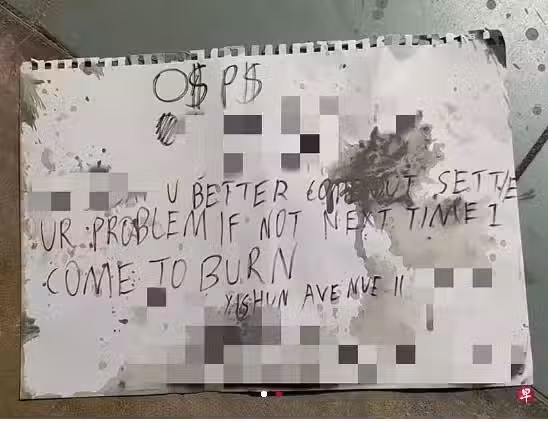 O$ P$
U BETTER COME OUT SETTLE
UR PROBLEM IF NOT NEXT TIME I
COME TO BURN
YISHUN AVENUE 11
早